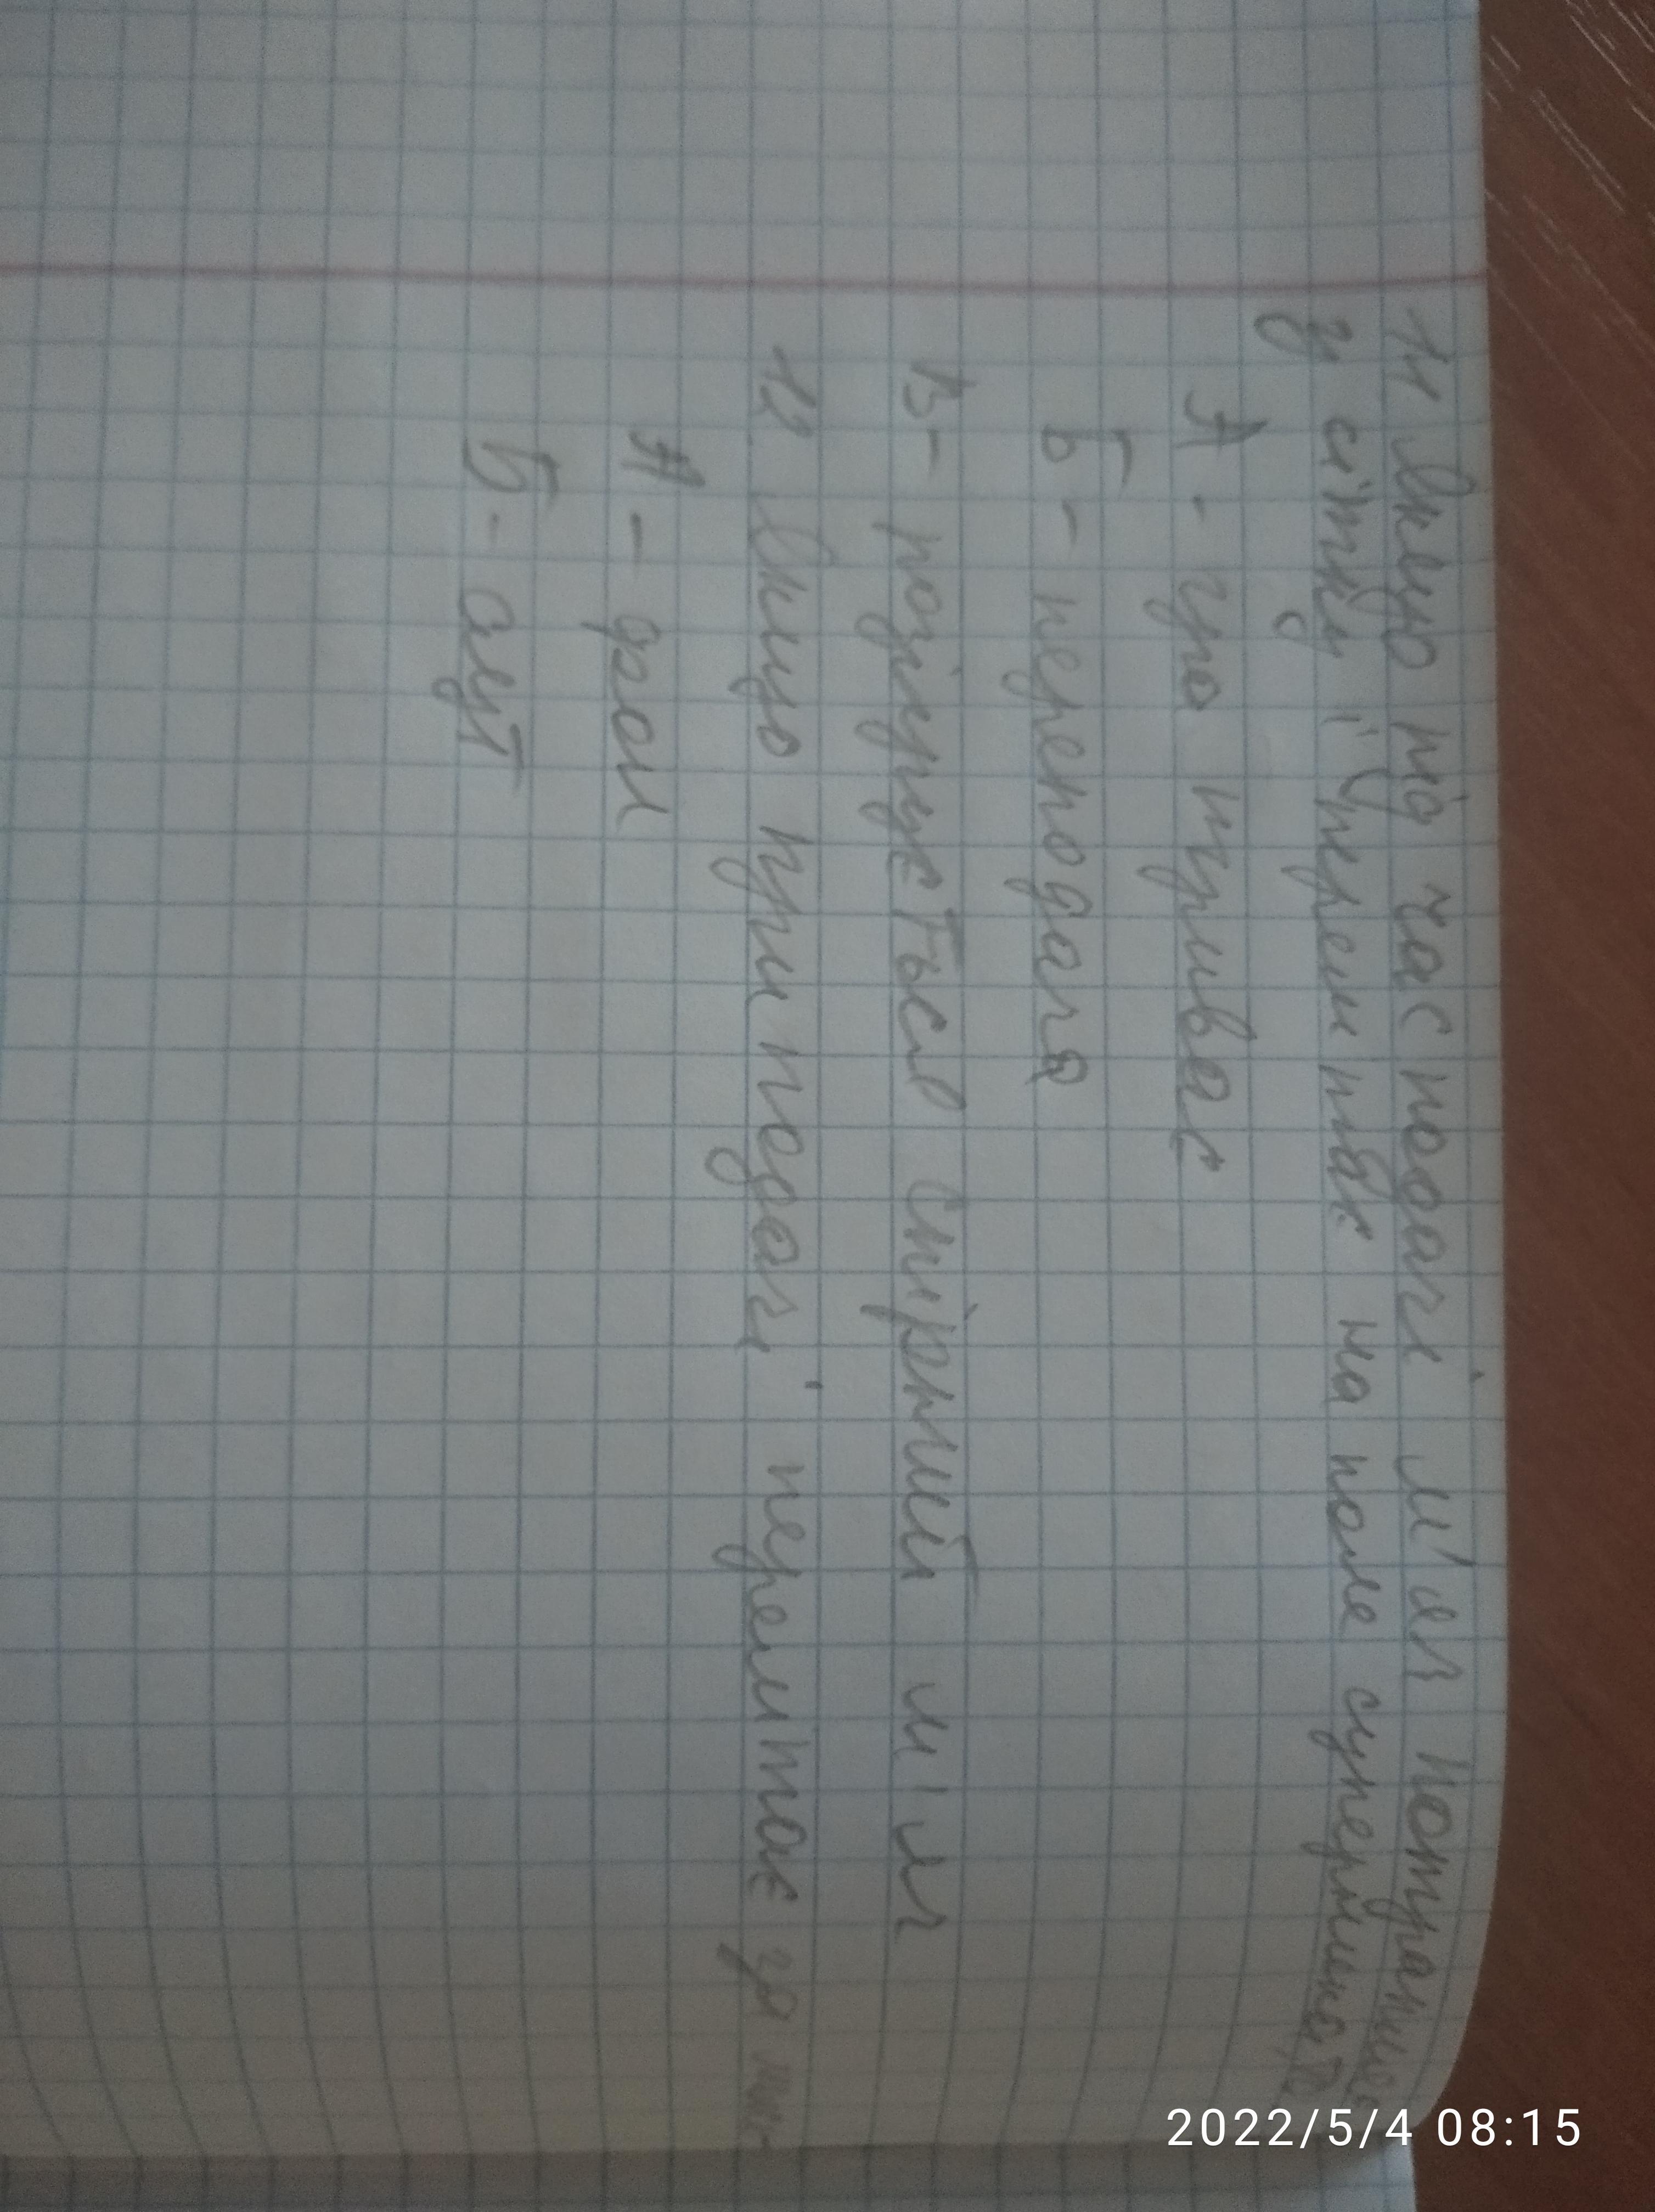 11 Якщо під час подачі м'яч потрапляє
у сітку і перелітає на поле суперника, то
А - гра триває
Б - переподача
В - розігрується спірний м'яч
12 Якщо при подачі переліпає за
А - фол
Б - аут
2022/5/4 08:15